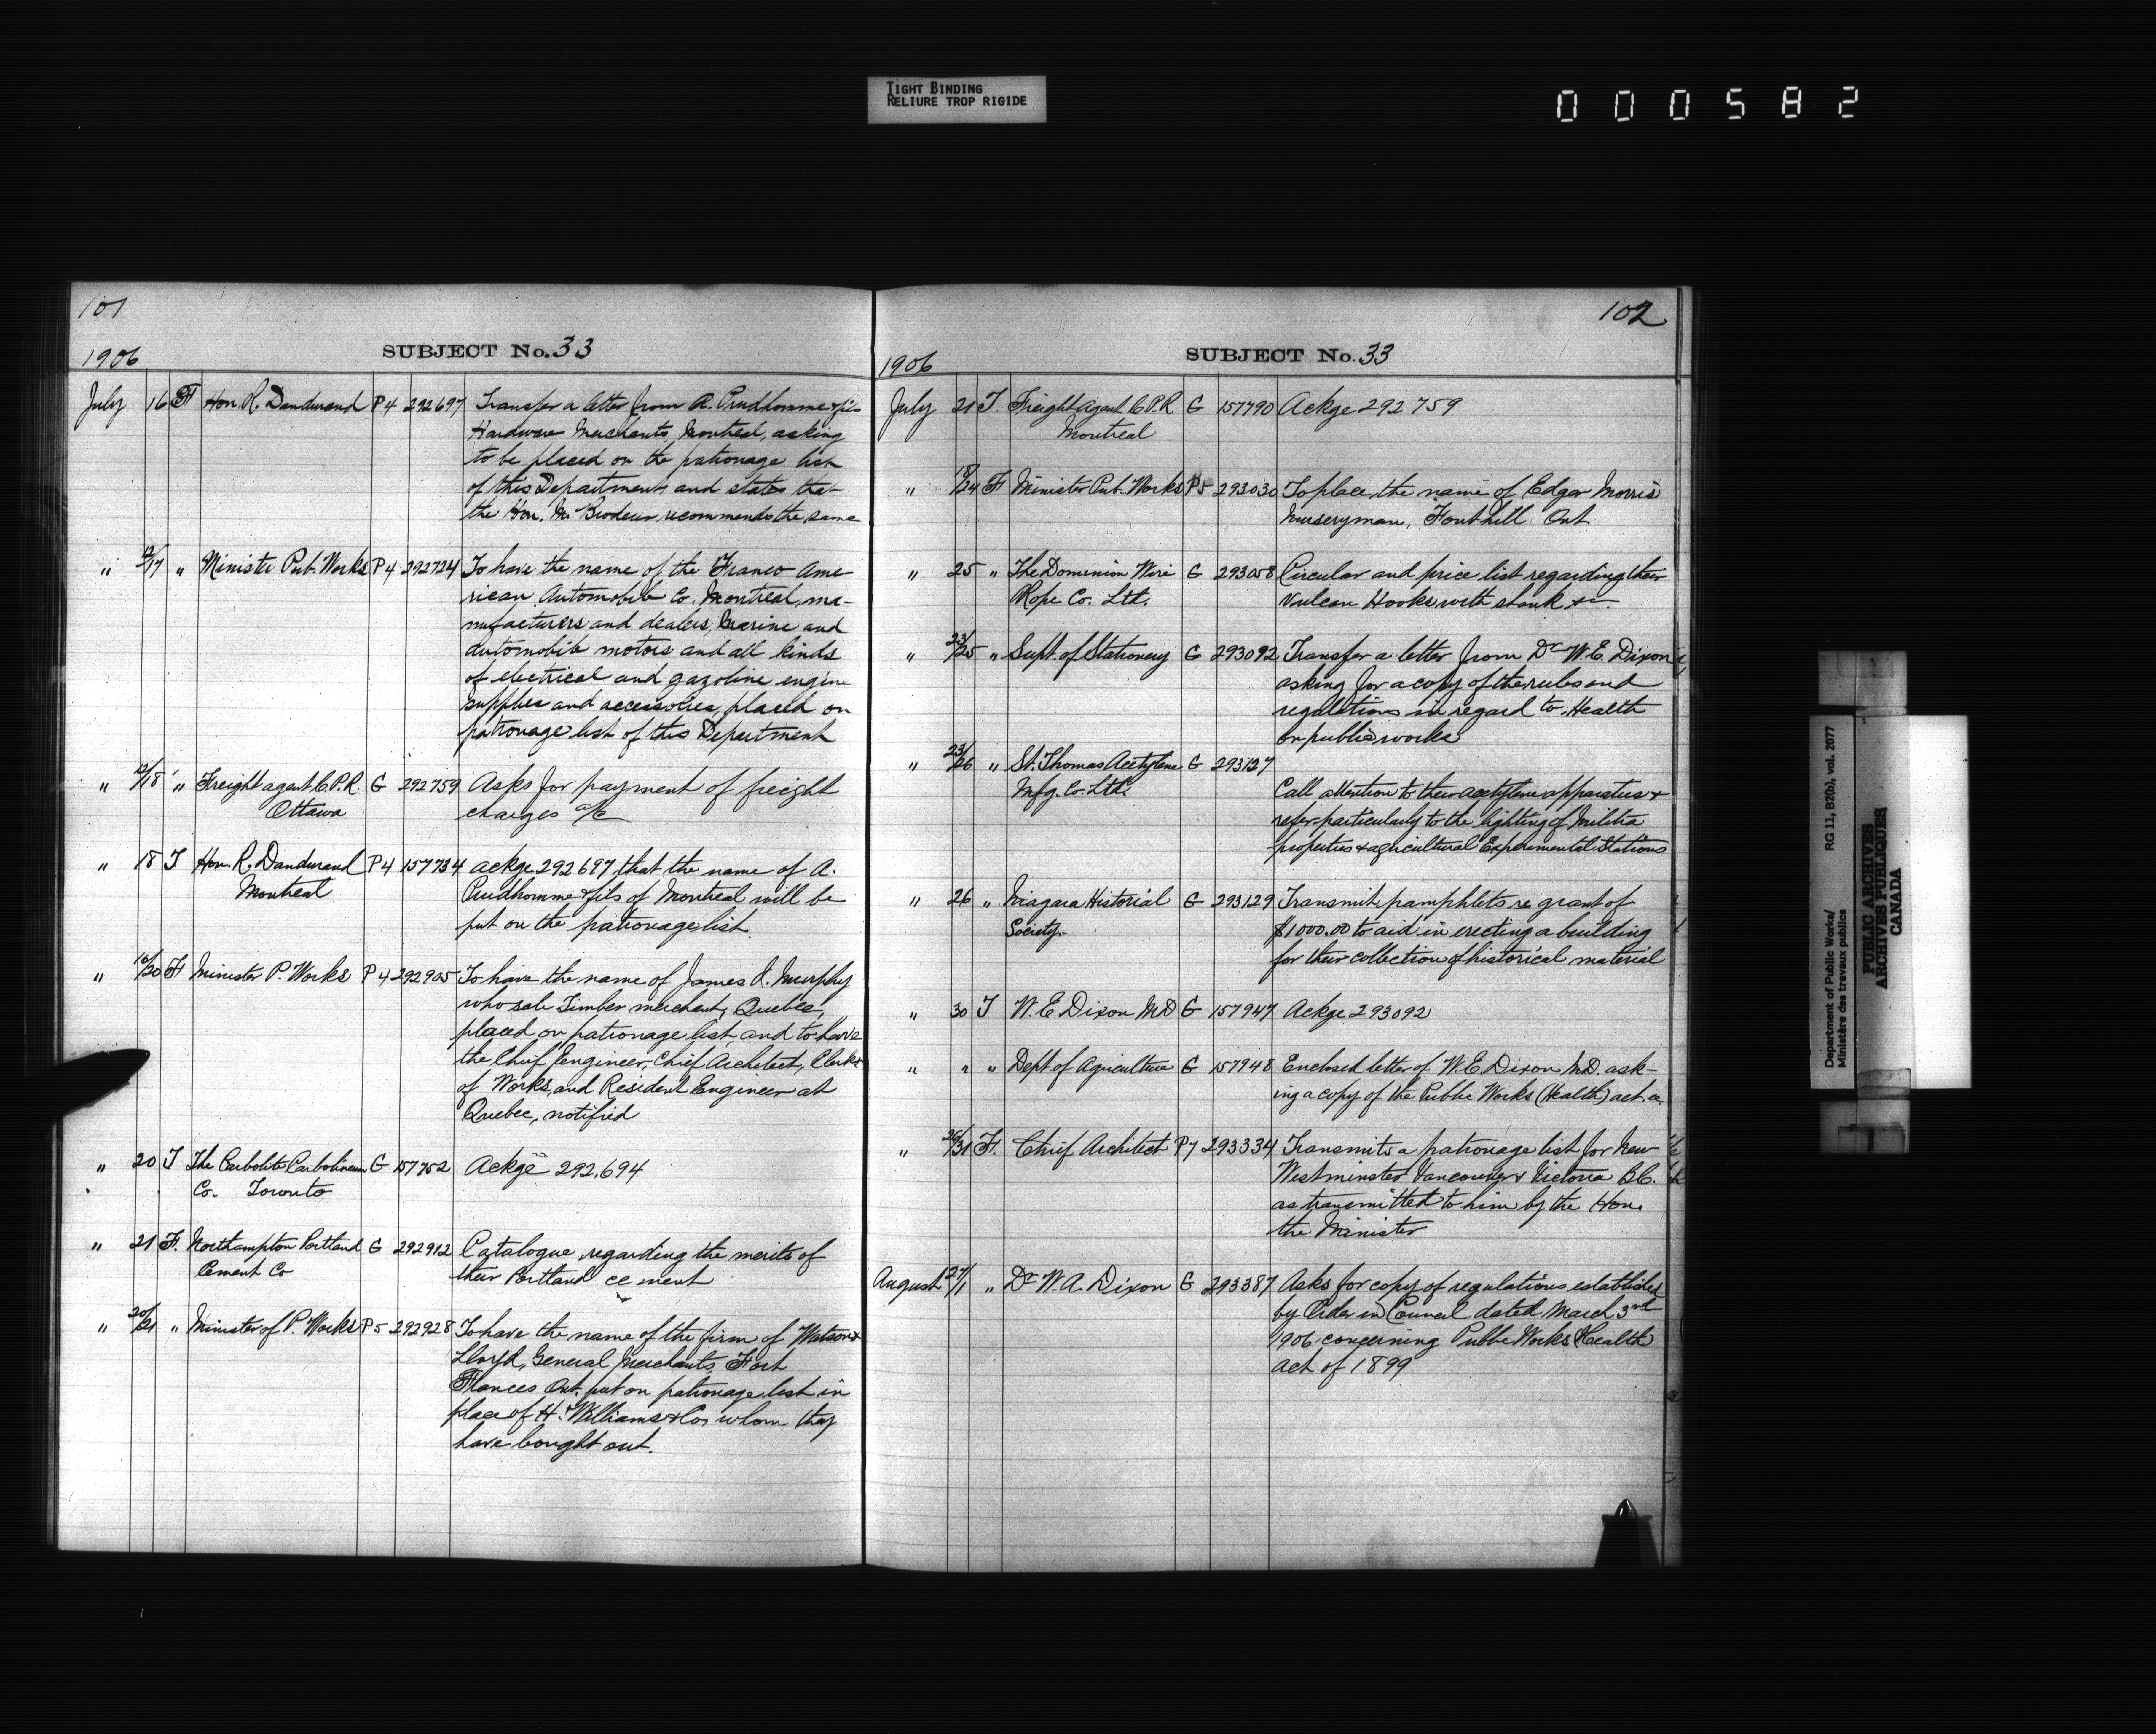 TIGHT BINDING
RELIURE TROP RIGIDE
000582
101
SUBJECT No. 33
1906
July 16 F Hon. R. Dandurand P4 292697 Transfer a letter from A. Prudhomme & fils
Hardware Merchants, Montreal, asking
to be placed on the patronage list
of this Department and states that
the Hon. Mr Brodeur recommends the same
" 12/17 " Minister Pub. Works P4 292724 To have the name of the Franco Ame-
rican Automobile Co. Montreal, ma-
nufacturers and dealers, Marine and
automobile motors and all kinds
of electrical and gazoline engine
supplies and accessories, placed on
patronage list of this Department
" 12/18 " Freight agent C.P.R. G 292759 Asks for payment of freight
Ottawa charges a/c
" 18 T Hon. R. Dandurand P4 157734 Ackge 292697 that the name of A.
Montreal Prudhomme & fils of Montreal will be
put on the patronage list.
" 16/20 F Minister P. Works P4 292905 To have the name of James J. Murphy
who sale Timber merchant, Quebec,
placed on patronage list, and to have
the Chief Engineer, Chief Architect, Clerk
of Works, and Resident Engineer at
Quebec, notified
" 20 T The Carbolite Carbolineum G 157752 Ackge 292.694
Co. Toronto
" 21 F. Northampton Portland G 292912 Catalogue regarding the merits of
Cement Co their Portland cement
" 20/21 " Minister of P. Works P5 292928 To have the name of the firm of Watson &
Lloyd, General Merchants, Fort
Frances Ont. put on patronage list in
place of H. Williams & Co, whom they
have bought out.
102
SUBJECT No. 33
1906
July 21 T. Freight Agent C.P.R. G 157790 Ackge 292759
Montreal
" 18/24 F Minister Pub. Works P5 293030 To place the name of Edgar Morris
Nurseryman, Fonthill Ont
" 25 " The Dominion Wire G 293058 Circular and price list regarding their
Rope Co. Ltd. Vulcan Hooks with shank &c
" 23/25 " Supt. of Stationery G 293092 Transfer a letter from Dr W. E. Dixon
asking for a copy of the rules and
regulations in regard to Health
on public works
" 23/26 " St. Thomas Acetylene G 293127
Mfg. Co. Ltd. Call attention to their acetylene apparatus &
refer particularly to the lighting of Militia
properties & agricultural Experimental Stations
" 26 " Niagara Historial G 293129 Transmit pamphlets re grant of
Society $1000.00 to aid in erecting a building
for their collection of historical material
" 30 T W. E Dixon MD G 157947 Ackge 293092
" " " Dept of Agriculture G 157948 Enclosed letter of W. E. Dixon M.D. ask-
ing a copy of the Public Works (Health) act.
" 26/31 F. Chief Architect P7 293334 Transmits a patronage list for New
Westminster Vancouver & Victoria B.C.
as transmitted to him by the Hon.
the Minister
August 27/1 " Dr W. A. Dixon G 293387 Asks for copy of regulations established
by Order in Council dated March 3rd
1906 concerning Public Works (Health)
Act of 1899
Department of Public Works/
Ministère des travaux publics
RG 11, B2(b), vol. 2077
PUBLIC ARCHIVES
ARCHIVES PUBLIQUES
CANADA